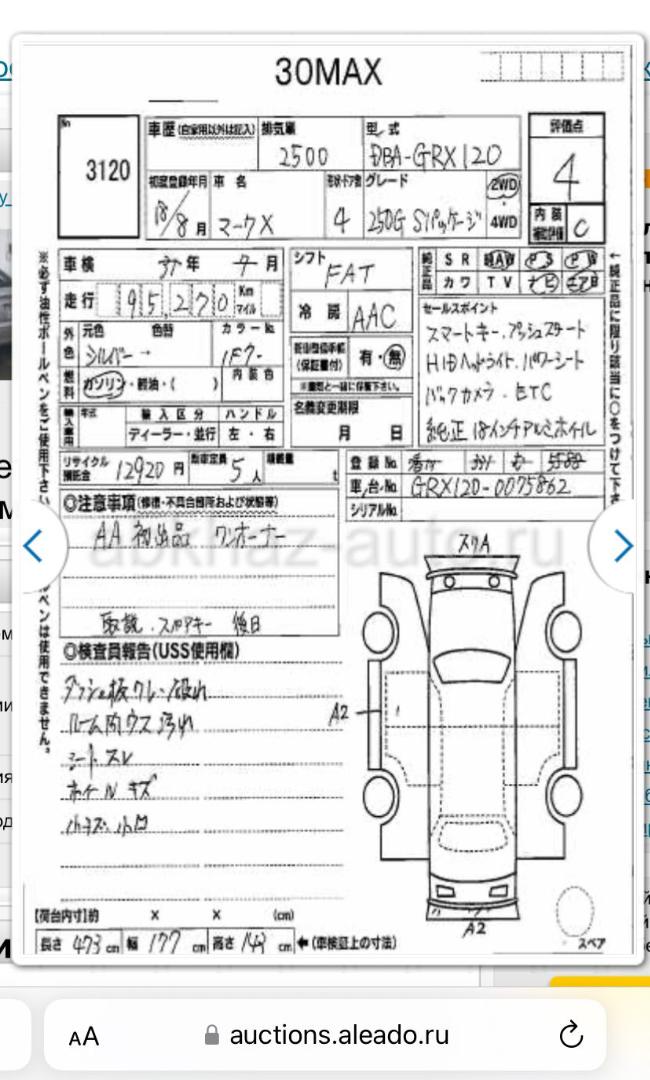 30MAX
No
3120
車歴(自家用以外は記入)
排気量
2500
型式
DBA-GRX120
評価点
4
初度登録年月
18/8月
車名
マークX
形状・ドア数
4
グレード
250G Sパッケージ
2WD
・
4WD
内装
補助評価
C
車検
31年7月
走行
95,270
Km
マイル
外色
元色
シルバー
色替
→
カラーNo.
1F7
燃料
ガソリン・軽油・( )
内装色
輸入車用
年式
輸入区分
ディーラー・並行
ハンドル
左・右
シフト
FAT
冷房
AAC
(保証書付)
有・無
※書類と一緒に保管下さい。
名義変更期限
月 日
純正品
SR
AW
PS
PW
カワ
TV
ナビ
エアB
セールスポイント
スマートキー.プッシュスタート
HIDヘッドライト.パワーシート
バックカメラ.ETC
純正18インチアルミホイル
←純正品に限り該当に○をつけて下さ
※必ず油性ボールペンをご使用下さい
ペンは使用できません。
リサイクル
預託金
12920円
乗車定員
5人
積載量
t
登録No.
5588
車台No.
GRX120-0075862
シリアルNo.
◎注意事項(修復・不具合箇所および状態等)
AA初出品 ワンオーナー
取説.スペアキー 後日
◎検査員報告(USS使用欄)
ダッシュ板ワレ・破れ
ルーム内ウス汚れ
シートスレ
ホイールキズ
小キズ.小凹
abkhaz-auto.ru
スリA
A2
A2
スペア
【荷台内寸】約 × × (cm)
長さ473cm 幅177cm 高さ143cm ←(車検証上の寸法)
AA
auctions.aleado.ru